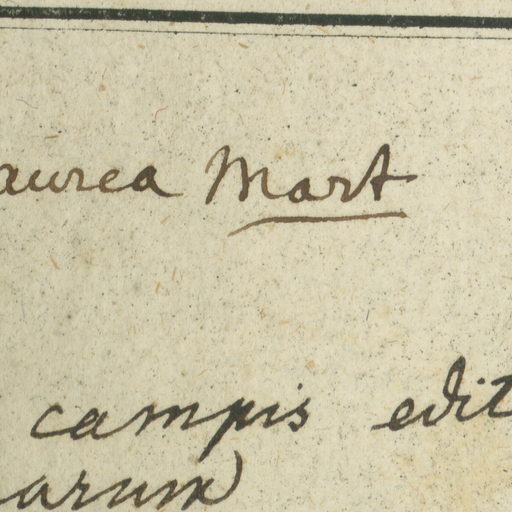 aurea Mart
campis edit
arum